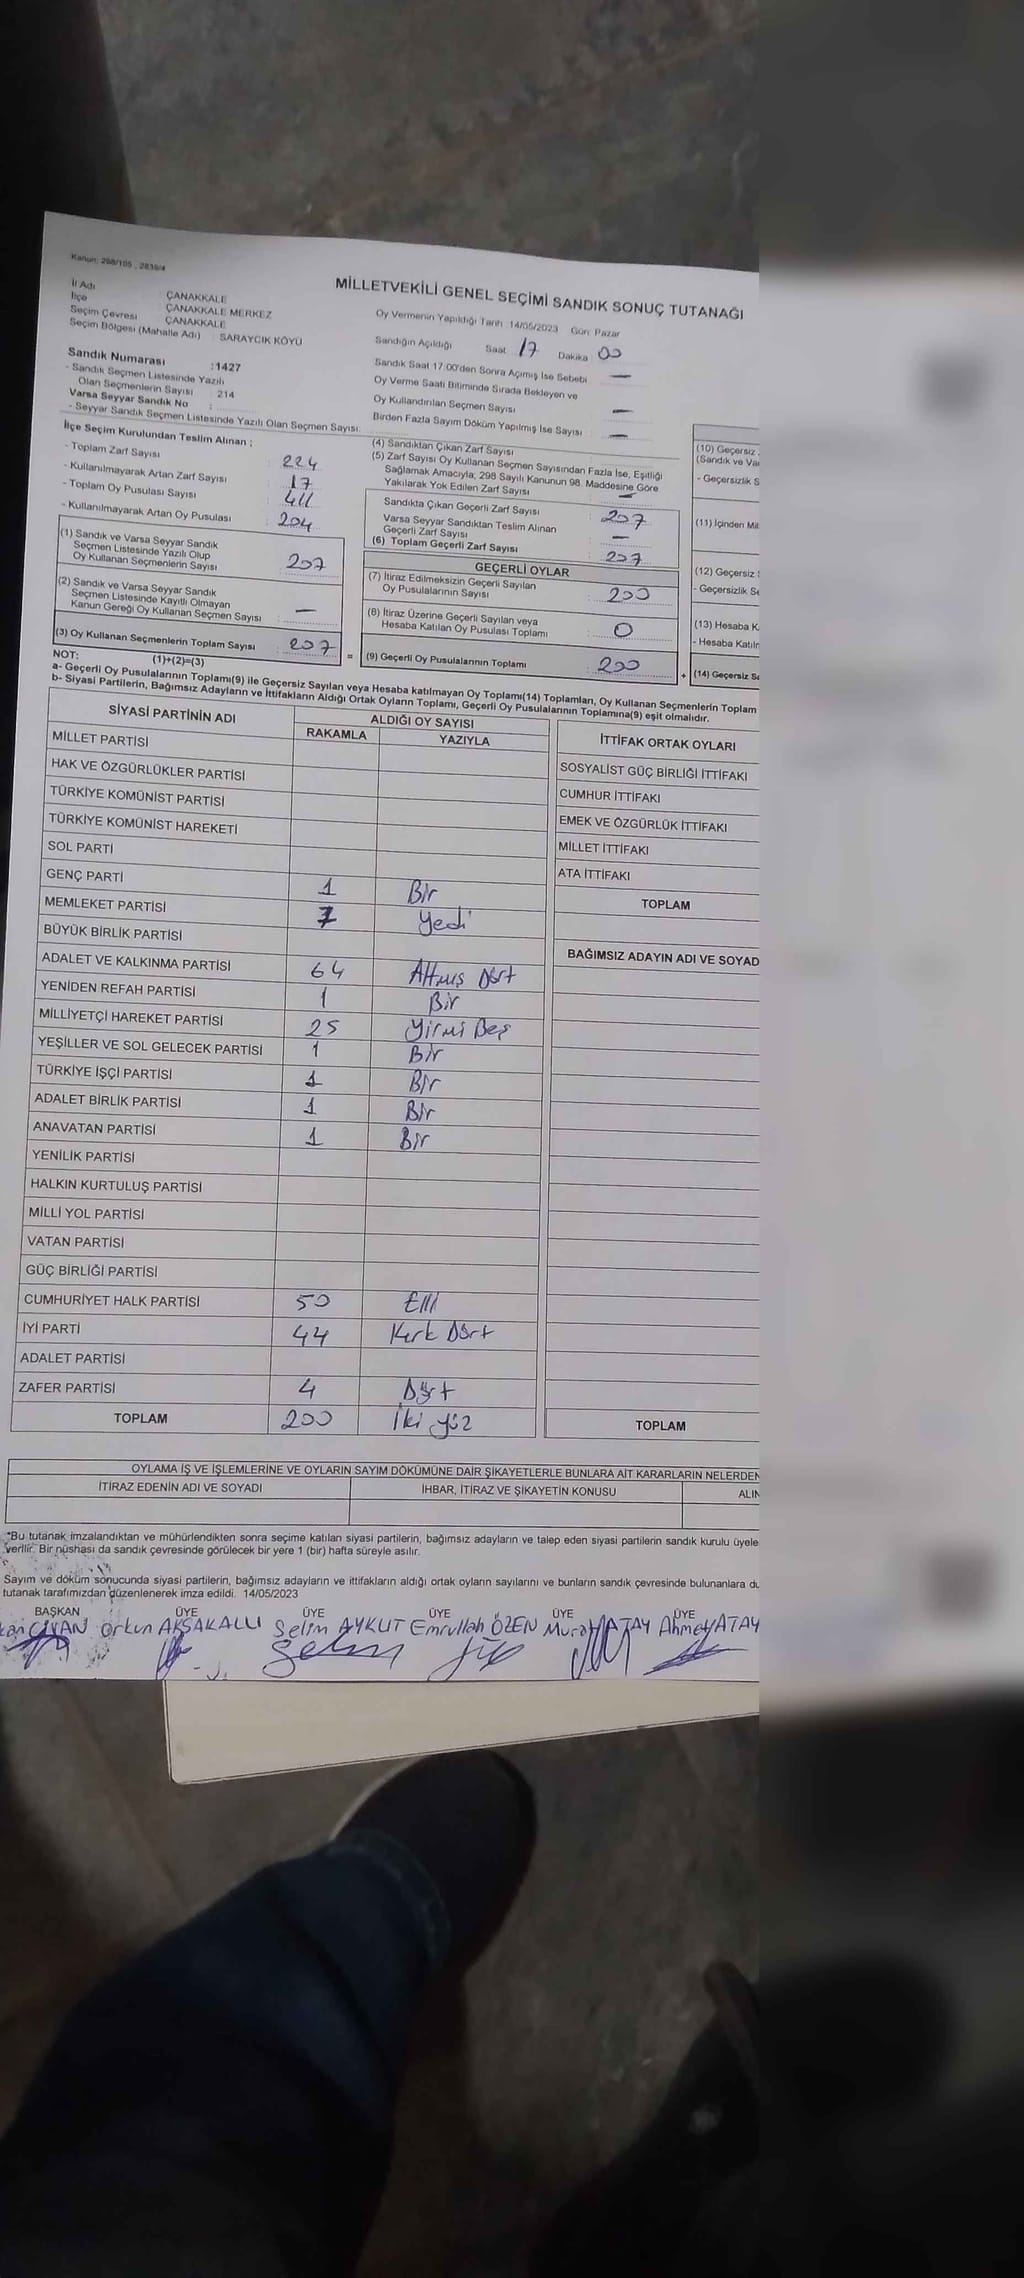 Kanun: 298/105 , 2839/4
MİLLETVEKİLİ GENEL SEÇİMİ SANDIK SONUÇ TUTANAĞI
İl Adı : ÇANAKKALE
İlçe : ÇANAKKALE MERKEZ
Seçim Çevresi : ÇANAKKALE
Seçim Bölgesi (Mahalle Adı) : SARAYCIK KÖYÜ
Sandık Numarası :1427
- Sandık Seçmen Listesinde Yazılı
Olan Seçmenlerin Sayısı : 214
Varsa Seyyar Sandık No :
- Seyyar Sandık Seçmen Listesinde Yazılı Olan Seçmen Sayısı:
Oy Vermenin Yapıldığı Tarih 14/05/2023 Gün: Pazar
Sandığın Açıldığı Saat 17 Dakika 00
Sandık Saat 17:00'den Sonra Açımış İse Sebebi —
Oy Verme Saati Bitiminde Sırada Bekleyen ve
Oy Kullandırılan Seçmen Sayısı —
Birden Fazla Sayım Döküm Yapılmış İse Sayısı —
İlçe Seçim Kurulundan Teslim Alınan :
- Toplam Zarf Sayısı : 224
- Kullanılmayarak Artan Zarf Sayısı : 17
- Toplam Oy Pusulası Sayısı : 411
- Kullanılmayarak Artan Oy Pusulası : 204
(1) Sandık ve Varsa Seyyar Sandık
Seçmen Listesinde Yazılı Olup
Oy Kullanan Seçmenlerin Sayısı : 207
(2) Sandık ve Varsa Seyyar Sandık
Seçmen Listesinde Kayıtlı Olmayan
Kanun Gereği Oy Kullanan Seçmen Sayısı : —
(3) Oy Kullanan Seçmenlerin Toplam Sayısı : 207
(1)+(2)=(3)
(4) Sandıktan Çıkan Zarf Sayısı
(5) Zarf Sayısı Oy Kullanan Seçmen Sayısından Fazla İse, Eşitliği
Sağlamak Amacıyla; 298 Sayılı Kanunun 98. Maddesine Göre
Yakılarak Yok Edilen Zarf Sayısı —
Sandıkta Çıkan Geçerli Zarf Sayısı : 207
Varsa Seyyar Sandıktan Teslim Alınan
Geçerli Zarf Sayısı : —
(6) Toplam Geçerli Zarf Sayısı : 207
GEÇERLİ OYLAR
(7) İtiraz Edilmeksizin Geçerli Sayılan
Oy Pusulalarının Sayısı : 200
(8) İtiraz Üzerine Geçerli Sayılan veya
Hesaba Katılan Oy Pusulası Toplamı : 0
= (9) Geçerli Oy Pusulalarının Toplamı : 200 +
(10) Geçersiz
(Sandık ve
- Geçersizlik
(11) İçinden
(12) Geçersiz
- Geçersizlik
(13) Hesaba
- Hesaba
(14) Geçersiz
NOT:
a- Geçerli Oy Pusulalarının Toplamı(9) ile Geçersiz Sayılan veya Hesaba katılmayan Oy Toplamı(14) Toplamları, Oy Kullanan Seçmenlerin Toplam
b- Siyasi Partilerin, Bağımsız Adayların ve İttifakların Aldığı Ortak Oyların Toplamı, Geçerli Oy Pusulalarının Toplamına(9) eşit olmalıdır.
SİYASİ PARTİNİN ADI ALDIĞI OY SAYISI
RAKAMLA YAZIYLA
MİLLET PARTİSİ
HAK VE ÖZGÜRLÜKLER PARTİSİ
TÜRKİYE KOMÜNİST PARTİSİ
TÜRKİYE KOMÜNİST HAREKETİ
SOL PARTİ
GENÇ PARTİ 1 Bir
MEMLEKET PARTİSİ 7 Yedi
BÜYÜK BİRLİK PARTİSİ
ADALET VE KALKINMA PARTİSİ 64 Altmış Dört
YENİDEN REFAH PARTİSİ 1 Bir
MİLLİYETÇİ HAREKET PARTİSİ 25 Yirmi Beş
YEŞİLLER VE SOL GELECEK PARTİSİ 1 Bir
TÜRKİYE İŞÇİ PARTİSİ 1 Bir
ADALET BİRLİK PARTİSİ 1 Bir
ANAVATAN PARTİSİ 1 Bir
YENİLİK PARTİSİ
HALKIN KURTULUŞ PARTİSİ
MİLLİ YOL PARTİSİ
VATAN PARTİSİ
GÜÇ BİRLİĞİ PARTİSİ
CUMHURİYET HALK PARTİSİ 50 Elli
İYİ PARTİ 44 Kırk Dört
ADALET PARTİSİ
ZAFER PARTİSİ 4 Dört
TOPLAM 200 İki yüz
İTTİFAK ORTAK OYLARI
SOSYALİST GÜÇ BİRLİĞİ İTTİFAKI
CUMHUR İTTİFAKI
EMEK VE ÖZGÜRLÜK İTTİFAKI
MİLLET İTTİFAKI
ATA İTTİFAKI
TOPLAM
BAĞIMSIZ ADAYIN ADI VE SOYAD
TOPLAM
OYLAMA İŞ VE İŞLEMLERİNE VE OYLARIN SAYIM DÖKÜMÜNE DAİR ŞİKAYETLERLE BUNLARA AİT KARARLARIN NELERDEN
İTİRAZ EDENİN ADI VE SOYADI İHBAR, İTİRAZ VE ŞİKAYETİN KONUSU ALIN
*Bu tutanak imzalandıktan ve mühürlendikten sonra seçime katılan siyasi partilerin, bağımsız adayların ve talep eden siyasi partilerin sandık kurulu üyele
verilir. Bir nüshası da sandık çevresinde görülecek bir yere 1 (bir) hafta süreyle asılır.
Sayım ve döküm sonucunda siyasi partilerin, bağımsız adayların ve ittifakların aldığı ortak oyların sayılarını ve bunların sandık çevresinde bulunanlara du
tutanak tarafımızdan düzenlenerek imza edildi. 14/05/2023
BAŞKAN ÜYE ÜYE ÜYE ÜYE ÜYE
CİVAN Orkun AKSAKALLI Selim AYKUT Emrullah ÖZEN Murat ATAY Ahmet ATAY